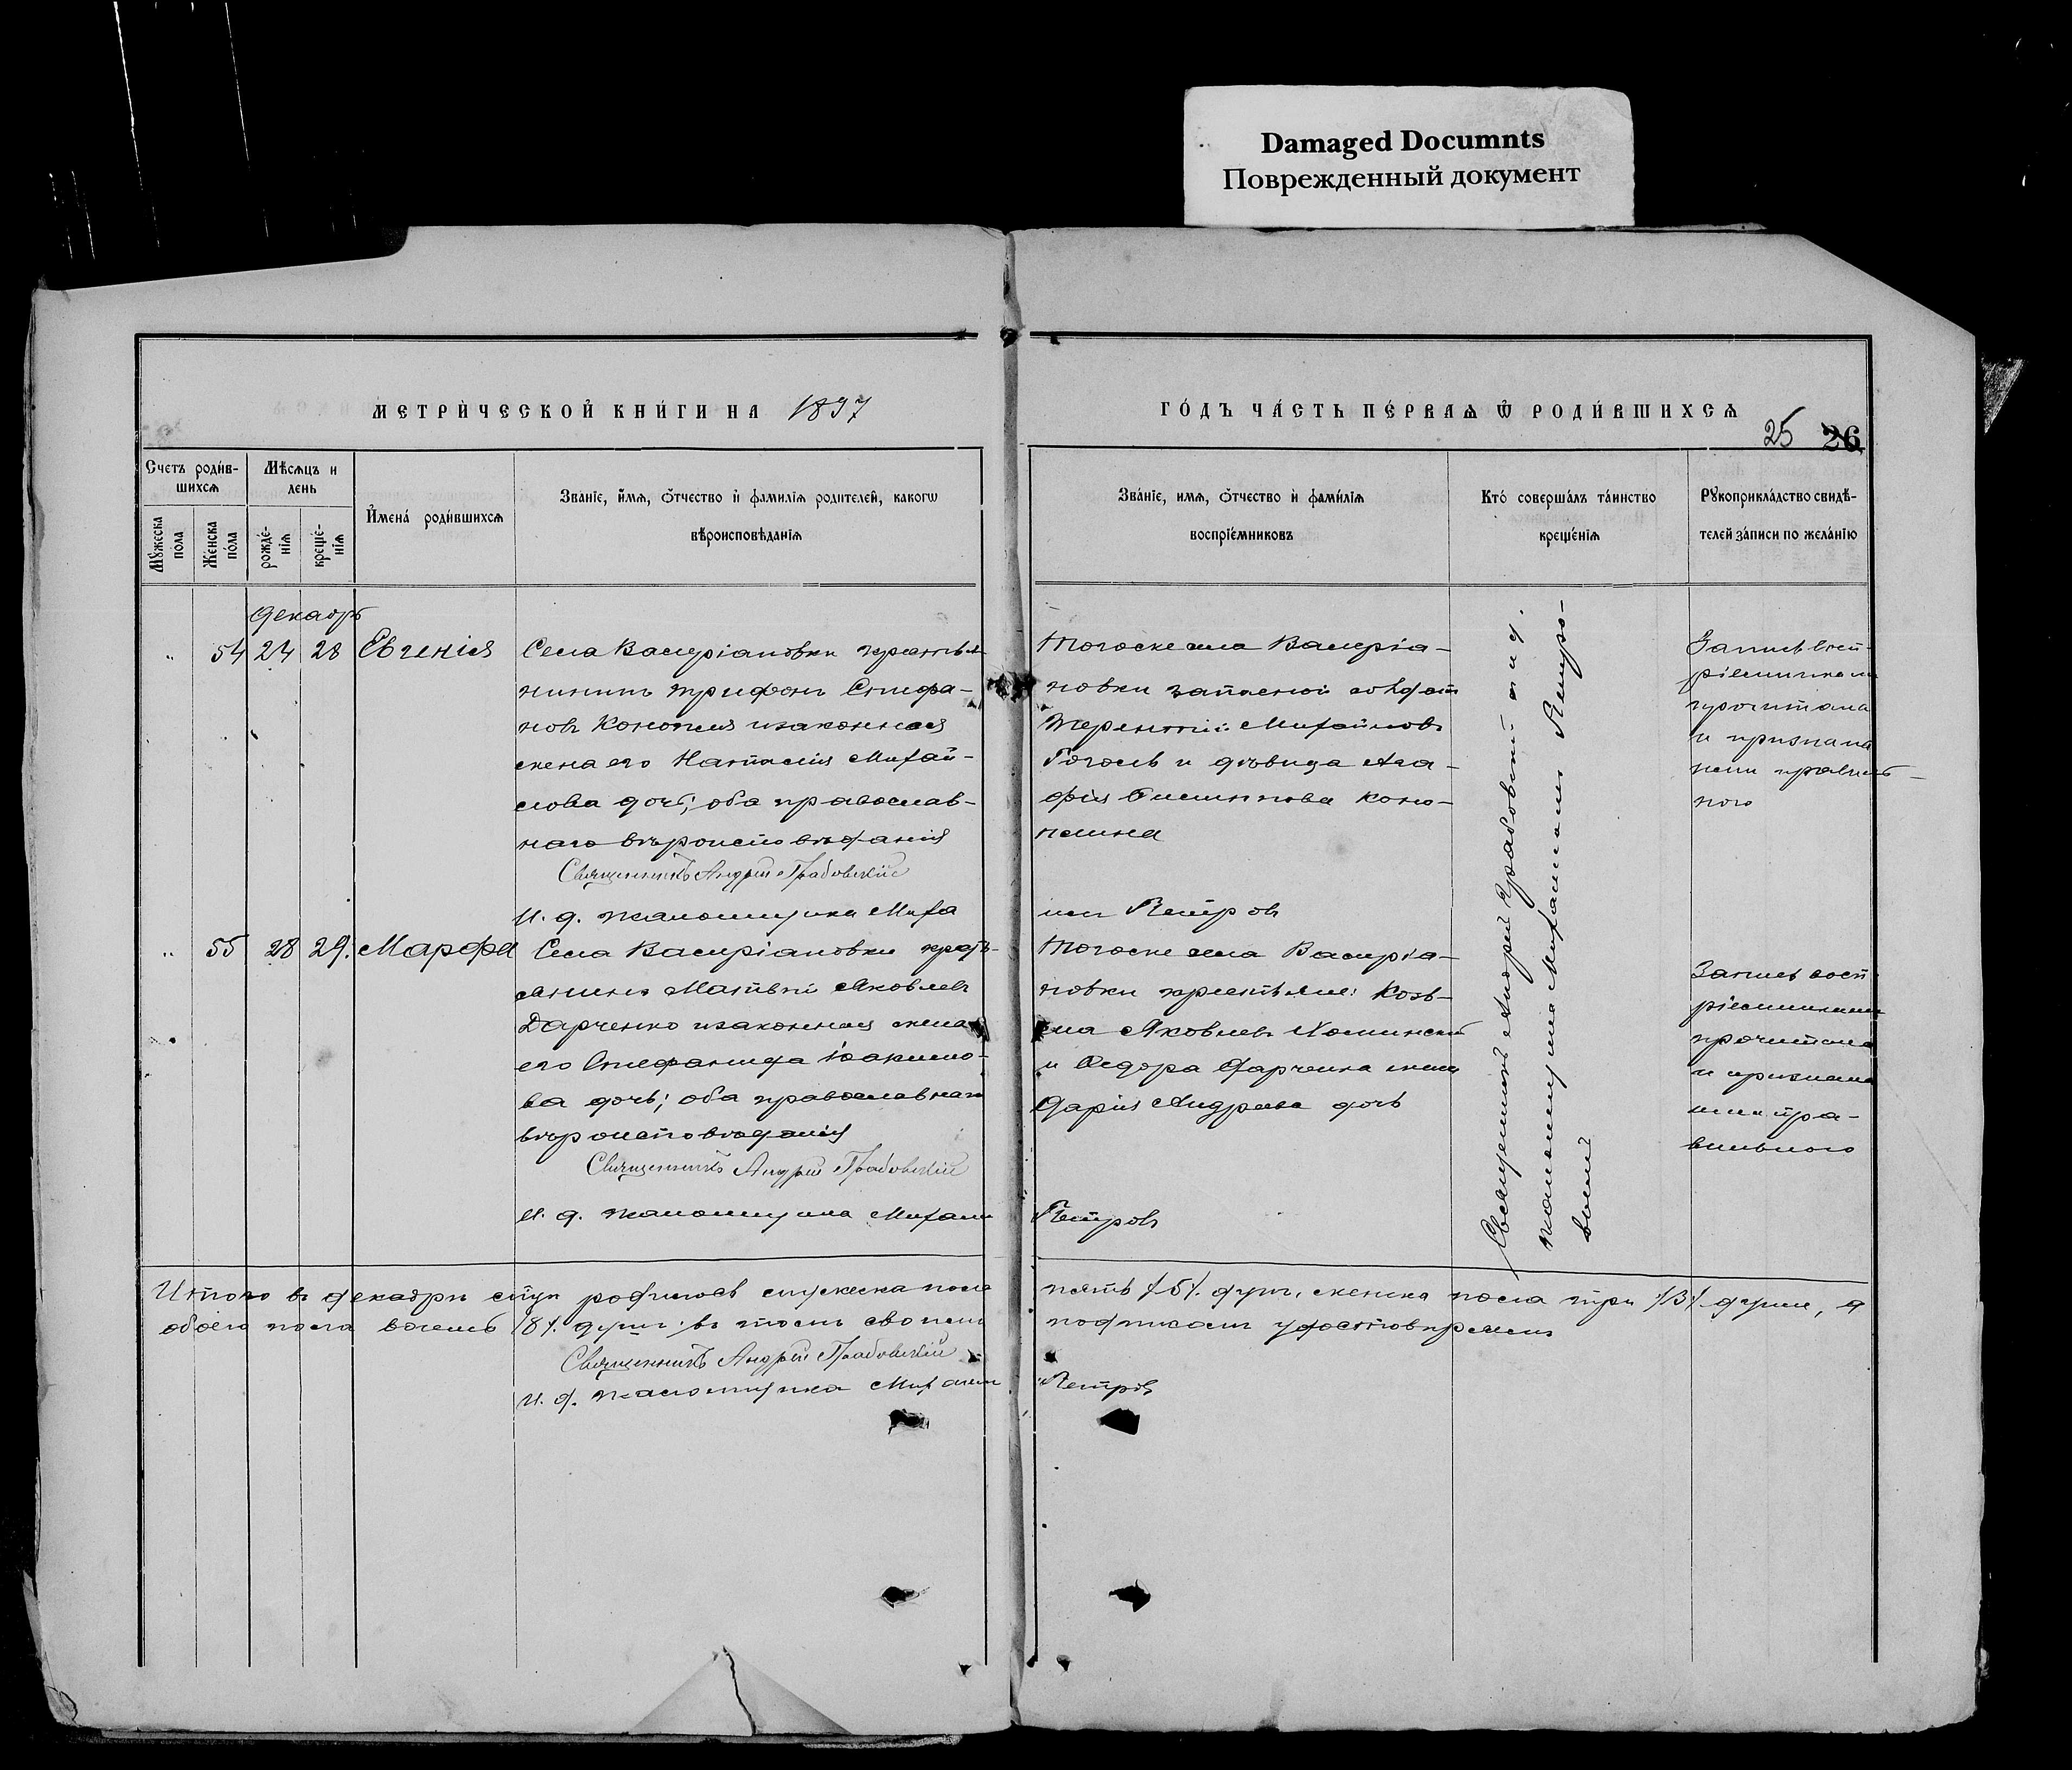 Damaged Documnts
Поврежденный документ
МЕТРИЧЕСКОЙ КНИГИ НА 1897
ГОДЪ ЧАСТЬ ПЕРВАЯ Ѿ РОДИВШИХСЯ
25 26
Счетъ родив-
шихся
Мѣсяцъ и
день
Мужеска
пола
Женска
пола
рожде-
нія
креще-
нія
Имена родившихся
Званіе, имя, отчество и фамилія родителей, какогѡ
вѣроисповѣданія
Званіе, имя, отчество и фамилія
воспріемниковъ
Кто совершалъ таинство
крещенія
Рукоприкладство свидѣ-
телей записи по желанію
Декабрь
" 54 24 28 Евгенія
Села Валеріановки крестья-
нинъ Трифонъ Стефа-
новъ Конопля и законная
жена его Наталія Михай-
лова дочь; оба православ-
наго вѣроисповѣданія
Священникъ Андрей Грабовскій
И. д. псаломщика Миха
илъ Петровъ
Тогоже села Валеріа-
новки запасной солдатъ
Терентій Михайловъ
Гоголь и дѣвица Ага-
фія Коно-
плина
Запись восп-
ріемникамъ
прочитана
и признана
ими правиль-
ною
" 55 28 29. Марфа
Села Валеріановки кресть-
янинъ Матвѣй Яковлевъ
Дарченко и законная жена
его Стефанида Іоакимо-
ва дочь; оба православнаго
вѣроисповѣданія
Священникъ Андрей Грабовскій
И. д. псаломщика Михаилъ
Петровъ
Тогоже села Валеріа-
новки крестьяне: Козь-
ма Яковлевъ
и Ѳедора Дарченка жена
Дарія Андреева дочь
Запись восп-
ріемниками
прочитана
и признана
ими пра-
вильною
Священникъ Андрей Грабовскій съ и. д.
псаломщика Михаиломъ Петро-
вымъ
Итого въ декабрѣ родилось мужеска пола
пять /5/. душъ, женска пола три /3/ души, а
обоего пола восемь /8/. душъ; въ томъ своимъ
подписомъ удостовѣряемъ
Священникъ Андрей Грабовскій
И. д. псаломщика Михаилъ
Петровъ